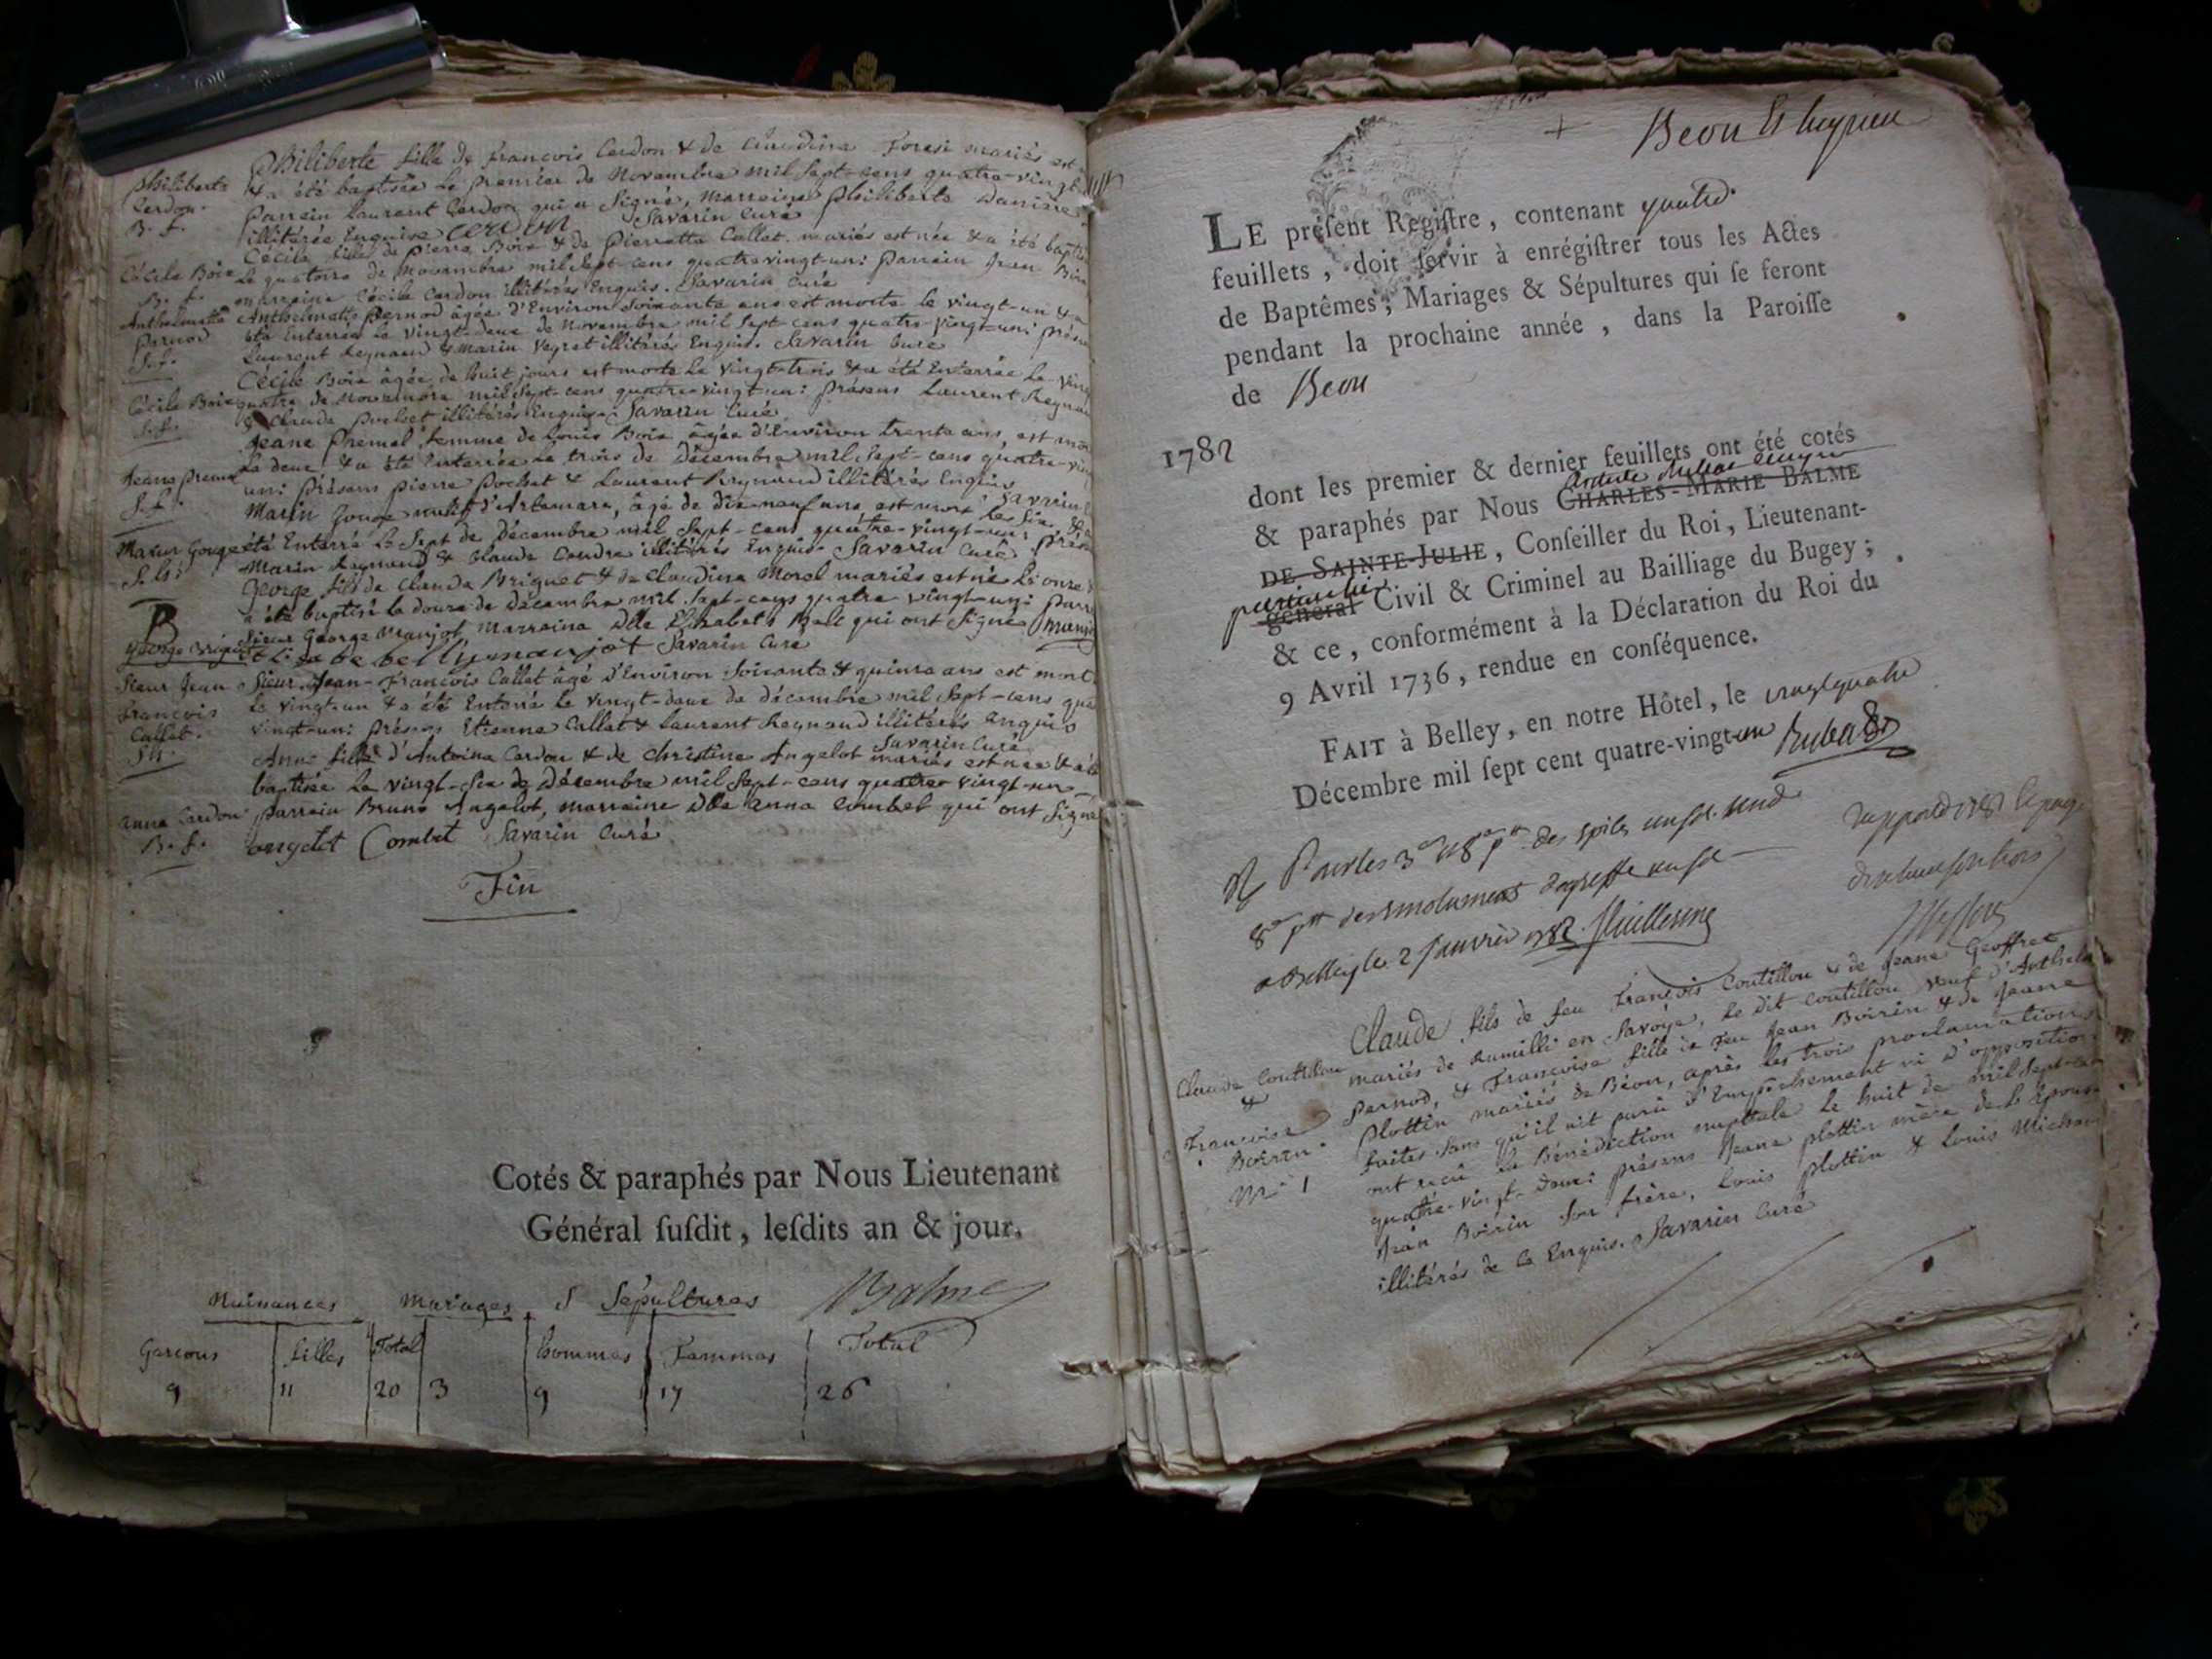 Philiberte fille de françois Cerdon & de Claudine Foresi mariés est
Philiberte
& a été baptisée le premier de Novembre mil Sept-cens quatre-vingt
Cerdon.
parrein Laurent Cerdon qui a Signé, marreine Philiberte
B. f.
illitérée Enquise cerdon Savarin Curé
Cécile fille de Pierre Boie & de Pierrette Callet mariés est née & a été bapt
Cécile Boie
le quatorze de Novembre mil Sept-cens quatre vingt-un: parrein Jean
B. f.
marreine Cécile Cerdon illitérés Enquis. Savarin Curé
Anthelmette
Anthelmette pernod âgée d'Environ Soixante ans est morte le vingt-un & a
pernod
été Enterrée le vingt-deux de Novembre mil Sept-cens quatre-vingt-un: présens
S. f.
Laurent Reynaud & Marin Veyret illitérés Enquis. Savarin Curé
Cécile Boie âgée de huit jours est morte le vingt-trois & a été Enterrée le ving
Cécile Boie
quatre de Novembre mil Sept-cens quatre-vingt-un: présens Laurent Reynau
S. f.
& Claude pochet illitérés Enquis. Savarin Curé
Jeane premel femme de Louis Boie âgée d'Environ trente ans est morte
Jeane premel
le deux & a été Enterrée le trois de Décembre mil Sept-cens quatre-vin
S. f.
un: présens pierre pochet & Laurent Reynaud illitérés Enquis
Marin Gouge natif d'Artemare, âgé de dix-neuf ans est mort le six & a
Marin Gouge
été Enterré le Sept de Décembre mil Sept-cens quatre-vingt-un: présens
Marin Reynaud & Claude illitérés Enquis Savarin Curé
George fils de Claude Briguet & de Claudine Morel mariés est né le onze &
B
a été baptisé le douze de Décembre mil Sept-cens quatre vingt-un: parr
Sieur George Maujot, Marreine Dlle Elizabet Belli qui ont Signé maujot
Savarin Curé
Sieur Jean
Sieur Jean-François Callet âgé d'Environ Soixante & quinze ans est mort
François
le vingt-un & a été Enterré le vingt-deux de décembre mil Sept-cens qua
Callet.
vingt-un: présens Etienne Callet & Laurent Reynaud illitérés Enquis
Savarin Curé
Anne fille d'Antoine Cerdon & de Christine Angelot mariés est née & a été
baptisée le vingt-six de Décembre mil Sept-cens quatre vingt-un
Anne Cerdon
parrein Bruno Angelot, marreine Dlle Anne Combet qui ont Signé
B. f.
angelot Combet Savarin Curé
Fin
Cotés & paraphés par Nous Lieutenant
Général ſuſdit, leſdits an & jour.
Naissances Mariages Sépultures Balme
Garçons filles Total hommes Fammes Total
9 11 20 3 9 17 26
Beon & luyrieu
LE préſent Regiſtre, contenant quatre
feuillets, doit ſervir à enrégiſtrer tous les Actes
de Baptêmes, Mariages & Sépultures qui ſe feront
pendant la prochaine année, dans la Paroiſſe
de Beon
1782
dont les premier & dernier feuillets ont été cotés
& paraphés par Nous CHARLES-MARIE BALME
DE SAINTE-JULIE, Conſeiller du Roi, Lieutenant-
particulier
général Civil & Criminel au Bailliage du Bugey;
& ce, conformément à la Déclaration du Roi du
9 Avril 1736, rendue en conſéquence.
FAIT à Belley, en notre Hôtel, le vingt quatre
Décembre mil ſept cent quatre-vingt-un
a Belley le 2 Janvier 1782
Claude fils de feu François Coutillou & de Jeane Geoffret
Claude Coutillou
mariés de Rumilli en Savoye, le dit Coutillou veuf d'Anthelm
&
pernod, & Françoise fille de feu Jean Boirin & de Jeane
Françoise
plottin mariés de Béon, après les trois proclamations
Boirin
faites Sans qu'il ait paru d'Empêchement ni d'opposition
M. 1
ont reçu la Bénédiction nuptiale le huit de mil Sept-cen
quatre-vingt-deux: présens Jeane plottin mère de l'Epouse
Jean Boirin Son frère, Louis plottin & Louis Michau
illitérés de ce Enquis. Savarin Curé